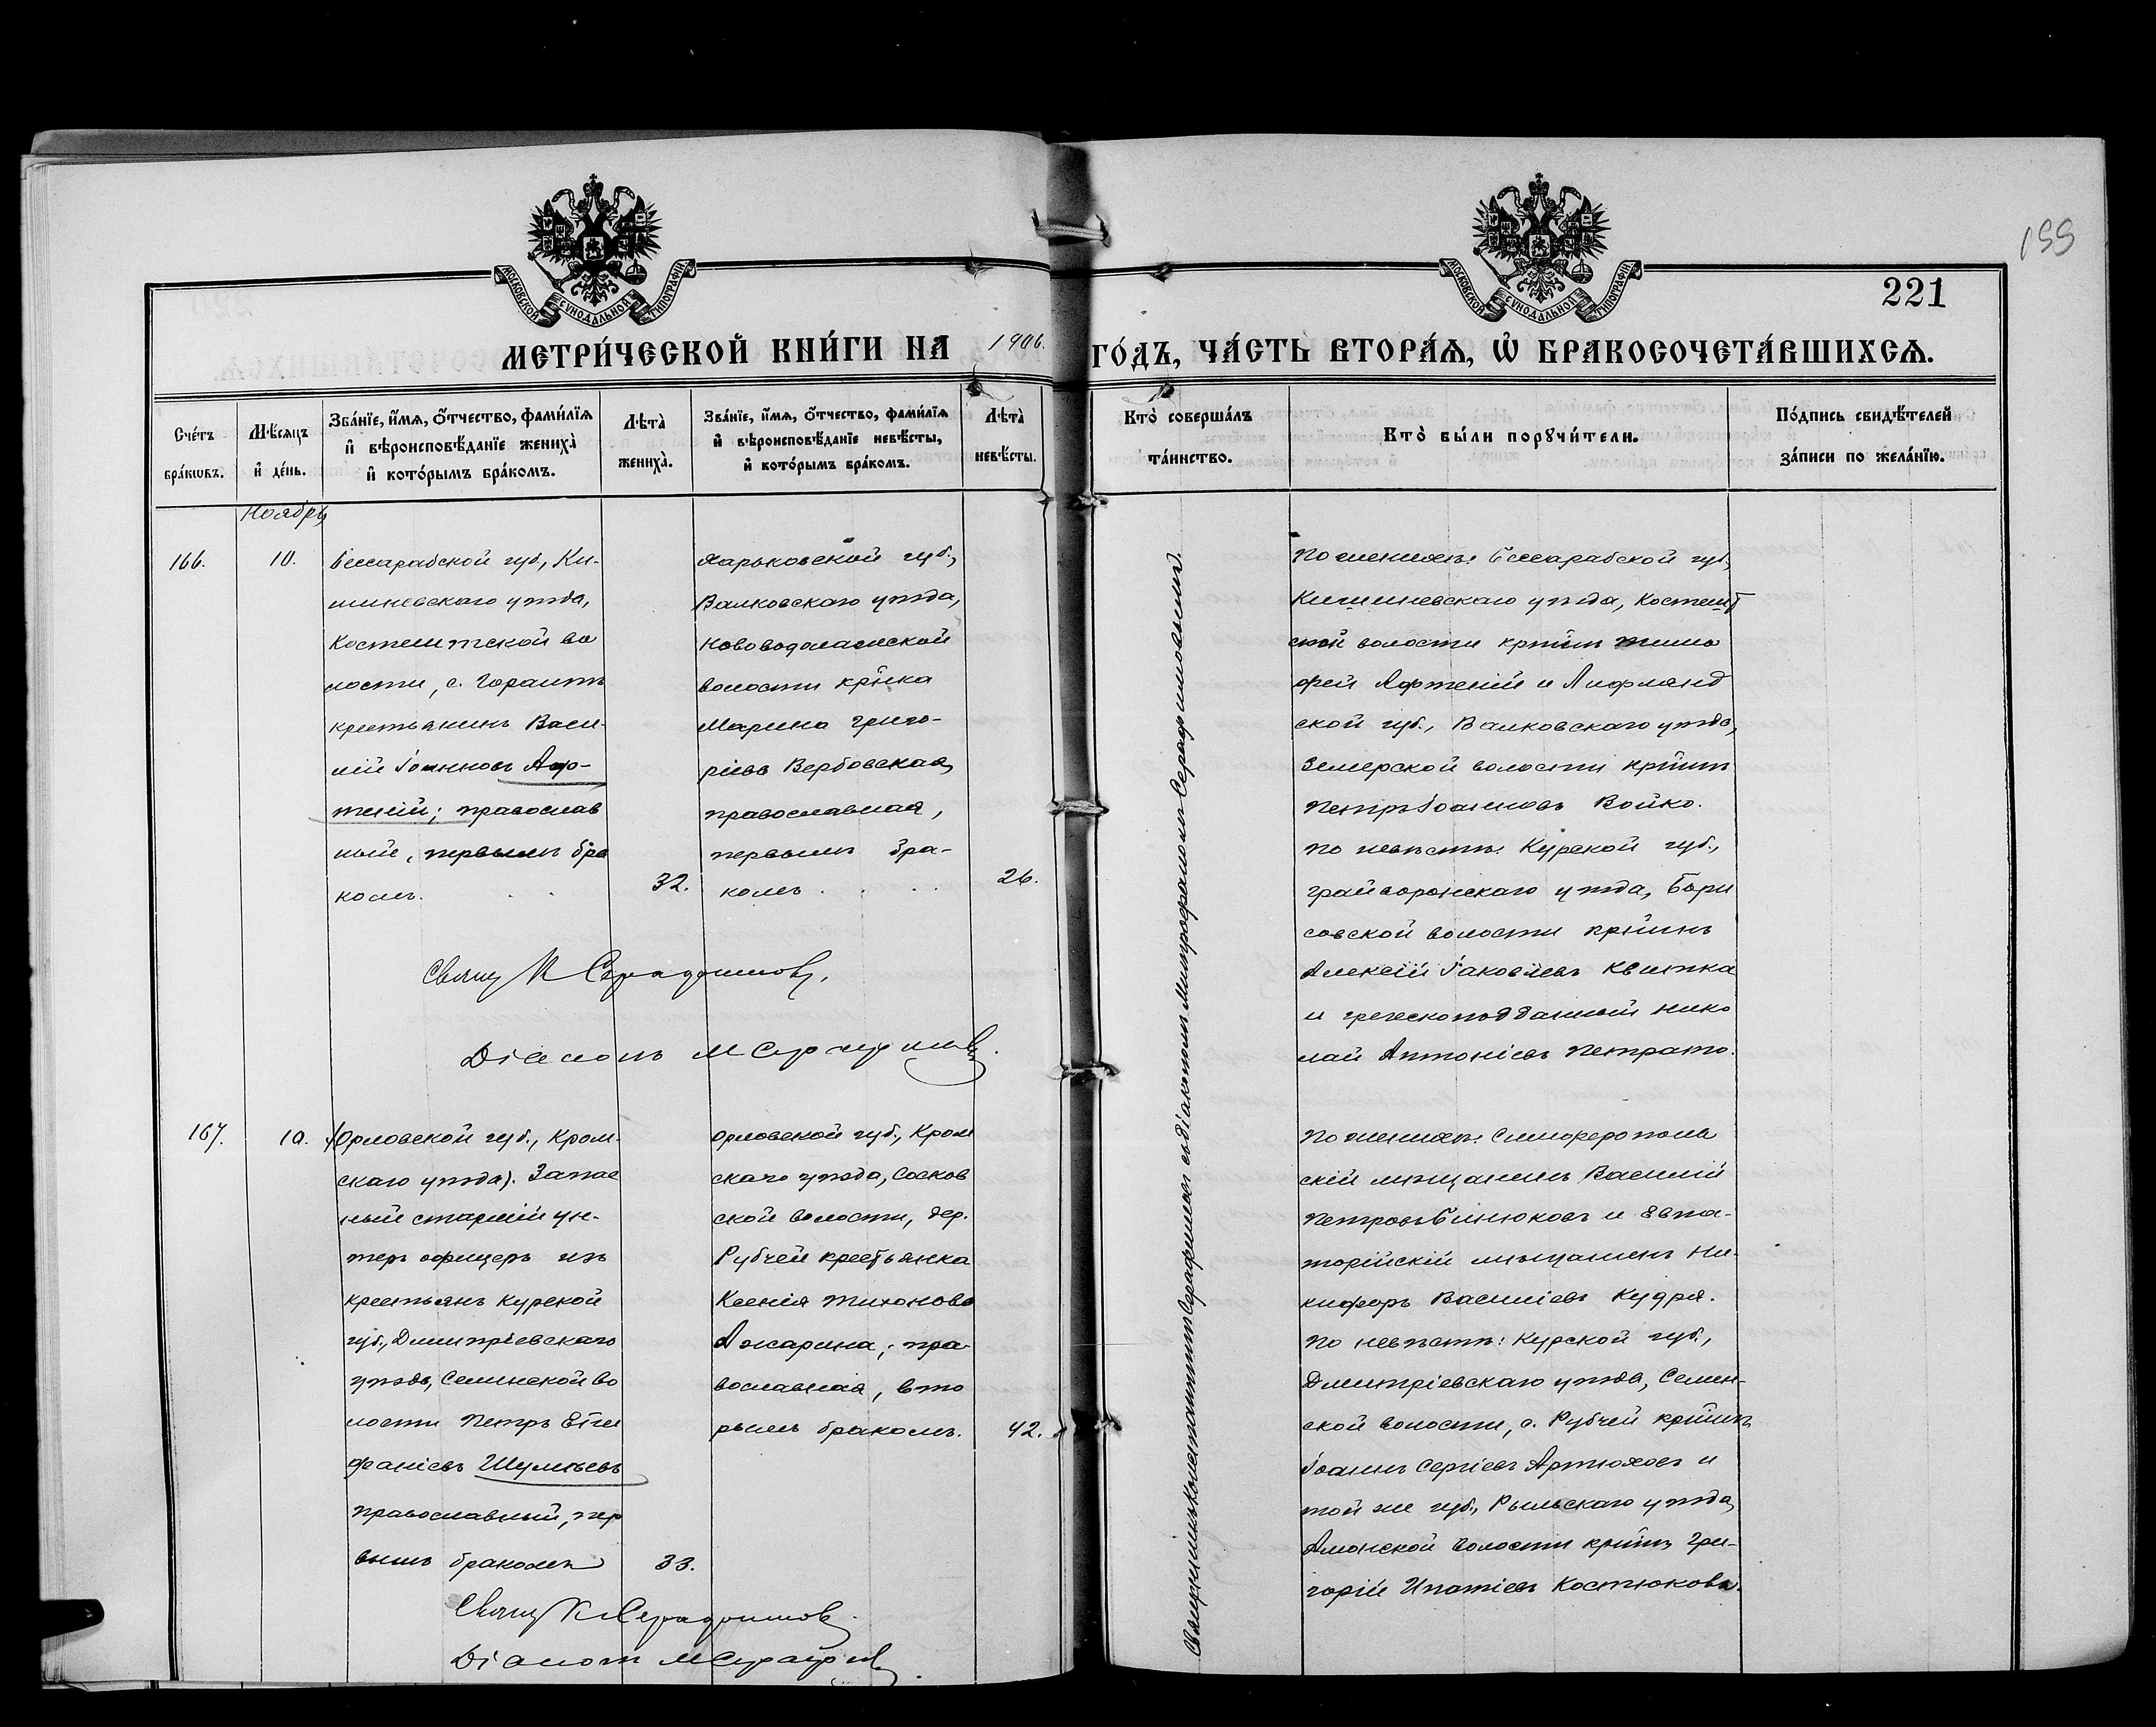 МОСКОВСКОЙ СѴНОДАЛЬНОЙ ТИПОГРАФІИ
МОСКОВСКОЙ СѴНОДАЛЬНОЙ ТИПОГРАФІИ
221
МЕТРИ́ЧЕСКОЙ КНИ́ГИ НА 1906. ГО́ДЪ, ЧА́СТЬ ВТОРА́Я, Ѡ҆ БРАКОСОЧЕТА́ВШИХСЯ.
Сче́тъ
бра́кѡвъ.
Мѣ́сяцъ
и҆ де́нь.
Зва́нїе, и҆́мя, ѻ҆́тчество, фами́лїя
и҆ вѣроисповѣ́данїе жениха̀
и҆ кото́рымъ бра́комъ.
Лѣта̀
жениха̀.
Зва́нїе, и҆́мя, ѻ҆́тчество, фами́лїя
и҆ вѣроисповѣ́данїе невѣ́сты,
и҆ кото́рымъ бра́комъ.
Лѣта̀
невѣ́сты.
Кто̀ соверша́лъ
та́инство.
Кто̀ бы́ли порꙋчи́тели.
По́дпись свидѣ́телей
за́писи по жела́нїю.
Ноябрь
166.
10.
Бессарабской губ., Ки-
шиневскаго уѣзда,
Костештской во
лости, с. Гораштъ
крестьянинъ Васи-
лій Іоанновъ Аф-
теній; православ
ный, первымъ бра
комъ.
32.
Харьковской губ.,
Валковскаго уѣзда,
Нововодолажской
волости кр̃нка
Марина Григо-
ріева Вербовская,
православная,
первымъ бра-
комъ
26.
Свящ К Серафимовъ.
Діаконъ М Серафимовъ.
Священникъ Константинъ Серафимовъ съ діакономъ Митрофаномъ Серафимовымъ.
По женихѣ: Бессарабской губ.,
Кишиневскаго уѣзда, Костешт
ской волости кр̃нинъ Тимо
фей Афтеній и Лифлянд
ской губ., Валковскаго уѣзда,
Земерской волости кр̃нинъ
Петръ Іоанновъ Войко.
По невѣстѣ: Курской губ.,
Грайворонскаго уѣзда, Бори
совской волости кр̃нинъ
Алексій Іаковлевъ Квитка
и греческоподданный Нико
лай Антоніевъ Петрато.
167.
10.
(Орловской губ., Кром-
скаго уѣзда). Запас
ный старшій ун-
теръ офицеръ изъ
крестьянъ Курской
губ., Дмитріевскаго
уѣзда, Селинской во
лости Петръ Епи
фаніевъ Шумѣевъ
православный, пер
вымъ бракомъ
33.
Орловской губ., Кром
скаго уѣзда, Сосков
ской волости, дер.
Рубчей крестьянка
Ксенія Тихонова
Ажарина; пра-
вославная, вто
рымъ бракомъ.
42.
Свящ К Серафимовъ.
Діаконъ М Серафимовъ.
По женихѣ: Симферополь
скій мѣщанинъ Василій
Петровъ Бинюковъ и Евпа-
торійскій мѣщанинъ Ни-
кифоръ Василіевъ Кудря.
По невѣстѣ: Курской губ.,
Дмитріевскаго уѣзда, Селин-
ской волости, с. Рубчей кр̃нинъ
Іоаннъ Сергіевъ Артюховъ и
той же губ., Рыльскаго уѣзда,
Амонской волости кр̃нинъ Гри-
горій Ипатіевъ Костюковъ.